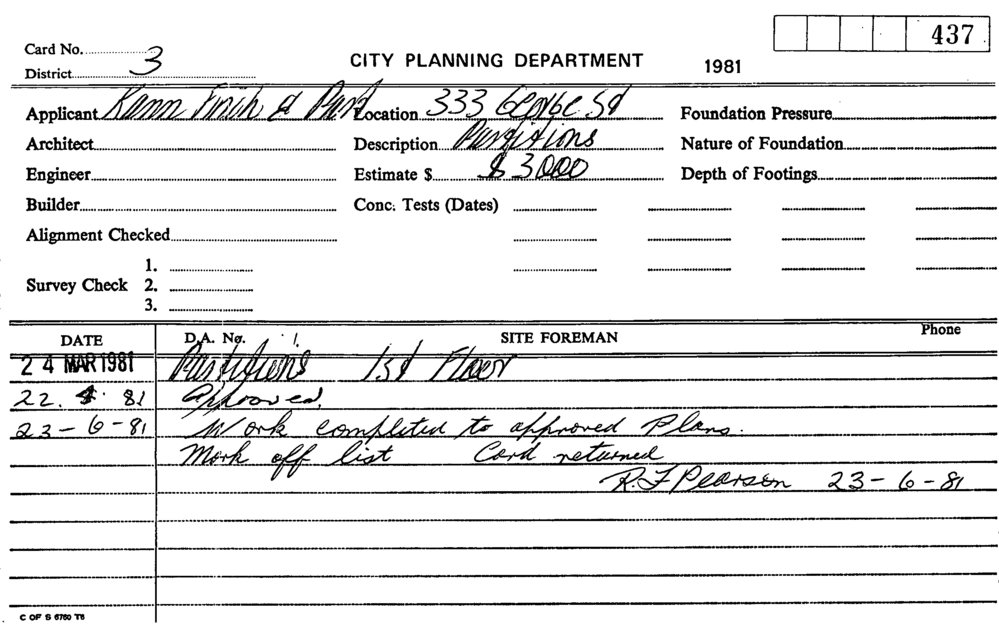 437
Card No. 3
District
CITY PLANNING DEPARTMENT 1981
Applicant Kann Finch & Part Location 333 George St Foundation Pressure
Architect Description Partitions Nature of Foundation
Engineer Estimate $ $ 3000 Depth of Footings
Builder Conc. Tests (Dates)
Alignment Checked
1.
Survey Check 2.
3.
DATE D.A. No. SITE FOREMAN Phone
24 MAR 1981 Partitions 1st Floor
22. 4. 81 Approved.
23-6-81 Work completed to approved Plans.
Mark off list Card returned
R.F Pearson 23-6-81
C OF S 6760 T6